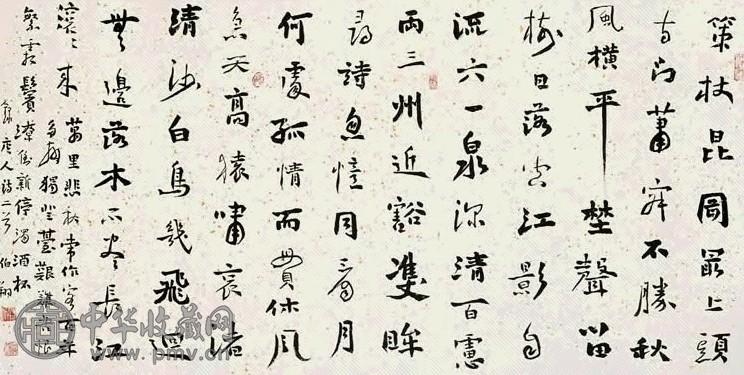 策杖昆岡最上頭
寺門蕭寂不勝秋
風橫平楚聲留
樹日落空江影自
流六一泉深清百慮
兩三州近豁雙眸
尋詩忽憶月
何處孤情而貫休風
急天高猿嘯哀渚
清沙白鳥幾飛迴
無邊落木不盡長江
滾々來萬里悲秋常作客百年
多病獨登臺艱難苦恨
繁霜鬢潦倒新停濁酒杯
錄唐人詩二首 伯翔
中华收藏网
www.pmv.cn